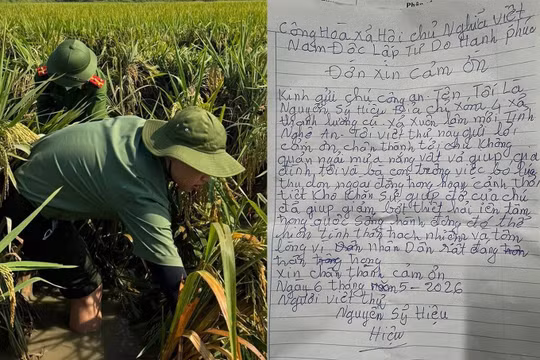 Phần
Công Hòa xả Hội chủ Nghĩa việt
Nam Độc Lập Tự Do Hạnh phúc
Đơn xin cảm ơn
Kính gửi chú công an. Tên Tôi Là
Nguyễn Sỹ Hiệu Địa chỉ xóm 4 xã
thanh tường cũ. xã xuân lâm mới Tỉnh
Nghệ An. Tôi viết thư này gửi lời
cảm ơn, chân thành tới chú không
quản ngại mưa nắng vất và giúp gia
đình tôi và bà con trong việc bó lúa
thu dọn ngoài đồng hoàn cảnh thời
tiết khó khăn sự giúp đỡ của chú
đã giúp giảm bớt thiệt hại
hành động đó thể
hiện tinh thần trách nhiệm và tấm
lòng vì Nhân Dân rất đáng
trân trọng
xin chân thành cảm ơn
Ngày 6 tháng 5-2026
Người viết thư
Nguyễn Sỹ Hiệu
Hiệu